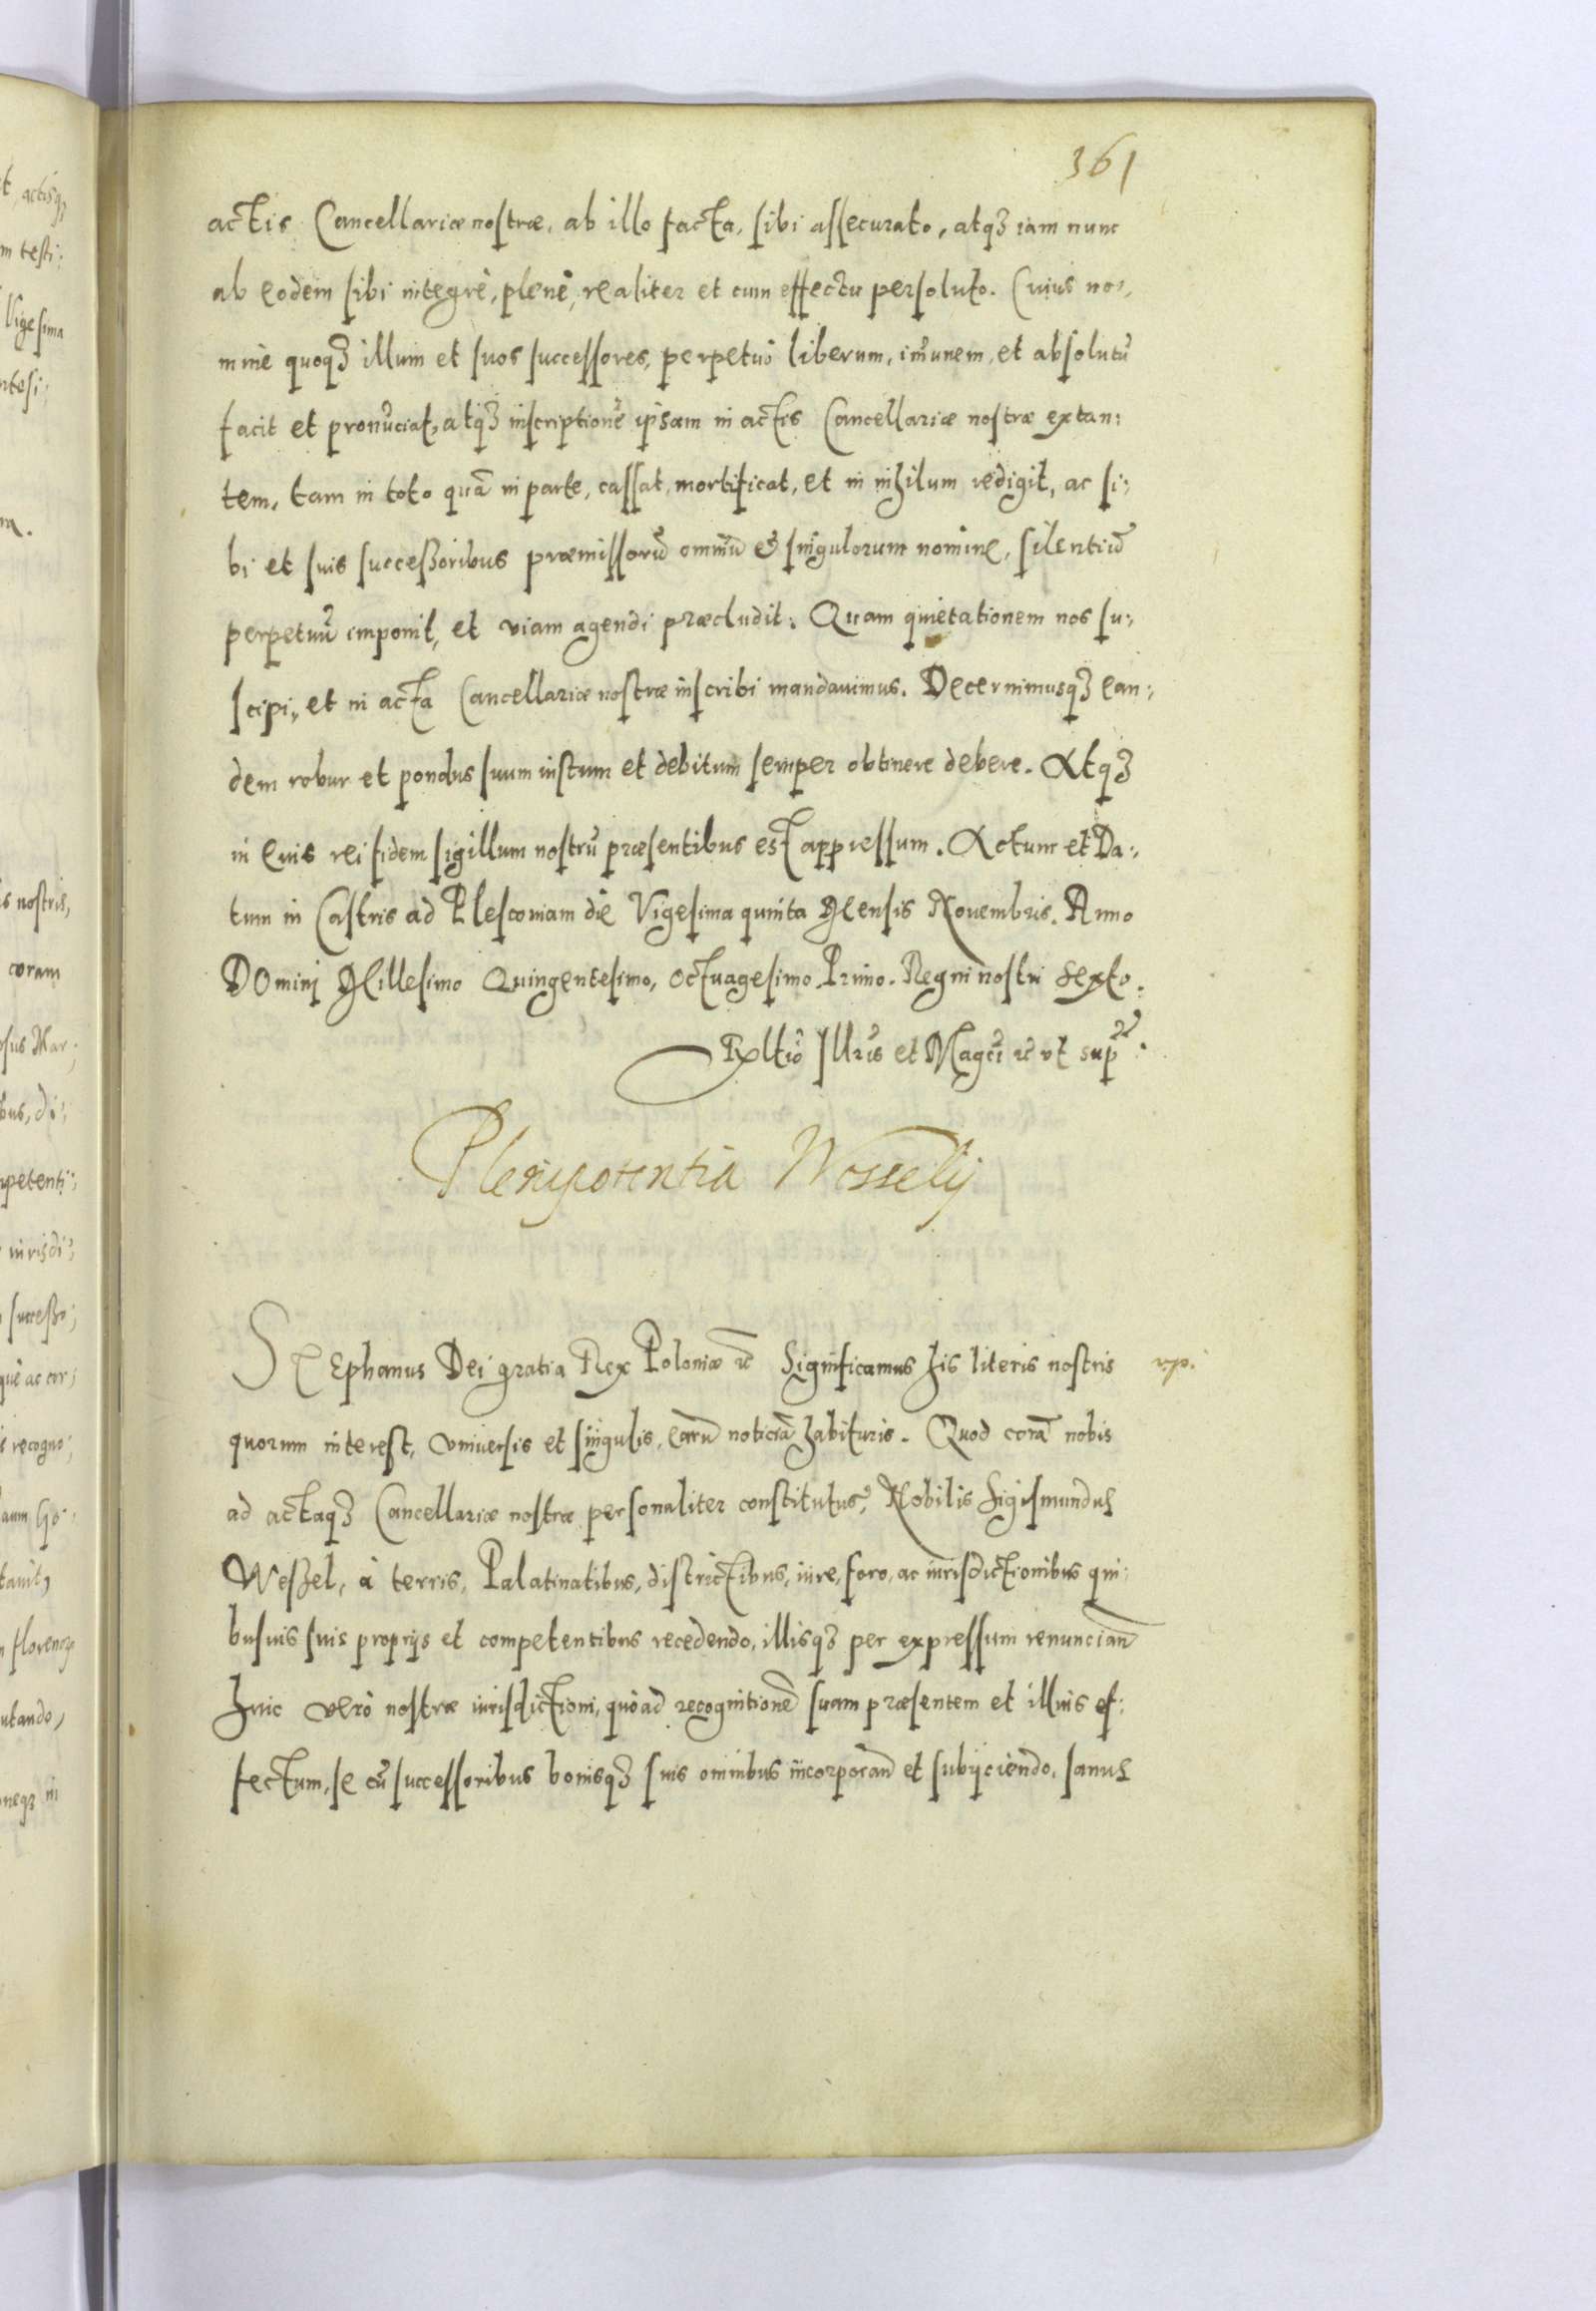 361
actis Cancellariæ nostræ, ab illo facta, sibi assecurato, atqȝ iam nunc
ab eodem sibi integrè, plenè, realiter et cum effectu persoluto. Cuius no:,
mine quoqȝ illum et suos successores, perpetuò liberum, im̃unem, et absolutũ
facit et pronũciat, atqȝ inscriptionẽ ipsam in actis Cancellariæ nostræ extan:
tem, tam in toto quã in parte, cassat, mortificat, et in nihilum redigit, ac si:,
bi et suis successoribus præmissorũ omniũ & singulorum nomine, silentiũ
perpetuũ imponit, et viam agendi præcludit. Quam quietationem nos su:,
scipi, et in acta Cancellariæ nostræ inscribi mandauimus. Decernimusqȝ ean:,
dem robur et pondus suum iustum et debitum semper obtinere debere. Atqȝ
in cuius rei fidem sigillum nostrũ præsentibus est appressum. Actum et Da:,
tum in Castris ad Plescouiam die Vigesima quinta Mensis Nouembris. Anno
DOmini Millesimo Quingentesimo, octuagesimo Primo. Regni nostri sexto.
Rltiõ Illr̃is et Magci ꝛc vt sup̃
Plenipotentia Wosselij
STEphanus Dei gratia Rex Poloniæ ꝛc Significamus his literis nostris
quorum interest, vniuersis et singulis, earũ noticiã habituris. Quod corã nobis
ad actaqȝ Cancellariæ nostræ personaliter constitutus, Nobilis Sigismundus
Weßel, à terris, Palatinatibus, districtibus, iure, foro, ac iurisdictionibus qui:
busuis suis proprijs et competentibus recedendo, illisqȝ per expressum renunciañ
huic verò nostræ iurisdictioni, quòad recognitionẽ suam præsentem et illius ef:
fectum, se cũ successoribus bonisqȝ suis omnibus incorporañ et subijciendo, sanus